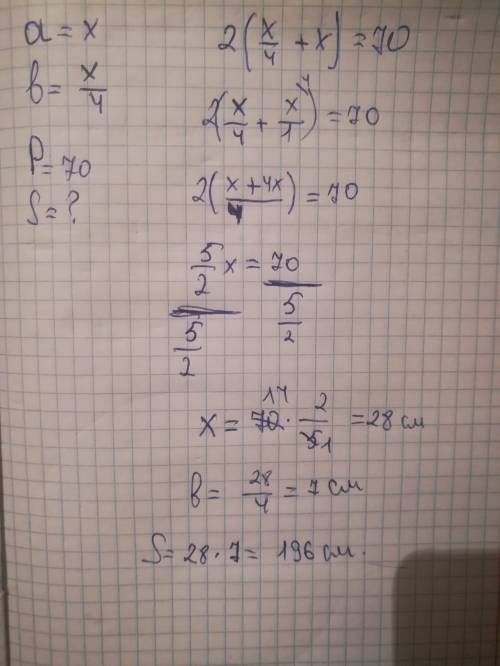 a = x
b = x/4
P = 70
S = ?
2(x/4 + x) = 70
2(x/4 + x/1)⁴ = 70
2((x + 4x)/4) = 70
5/2 x = 70
5/2 5/2
x = 70 · 2/5 = 28 см
14 1
b = 28/4 = 7 см
S = 28 · 7 = 196 см.